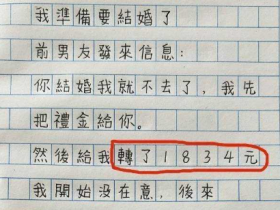 我準備要結婚了
前男友發來信息:
你結婚我就不去了，我先
把禮金給你。
然後給我轉了1834元
我開始没在意，後來